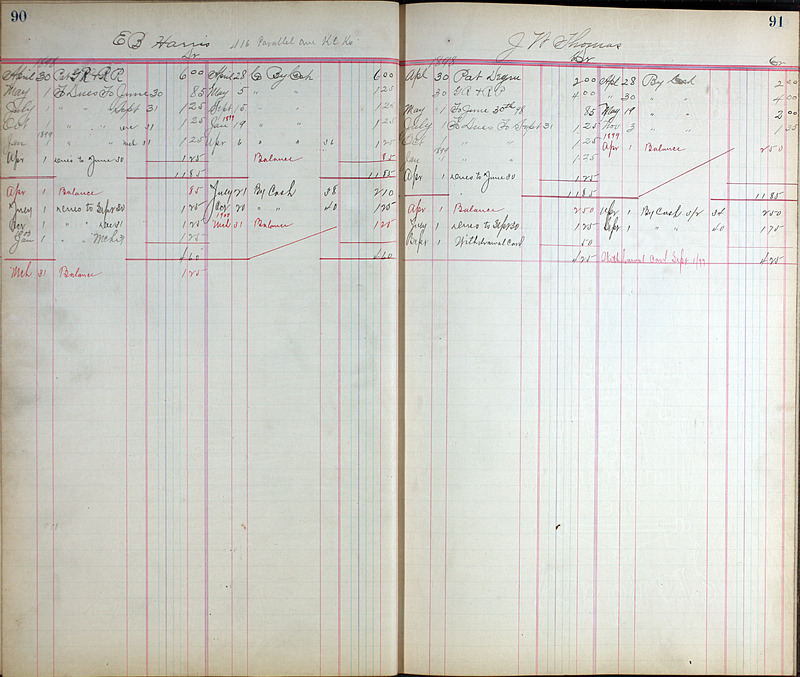 90
E B Harris 416 Parallel ave K C Ks
1898 Dr
April 30 Pat G R & R R 6 00 April 28 By Cash 6 00
May 1 To Dues To June 30 85 May 5 " " 1 25
July " " Sept 31 1 25 Sept 5 " 1 25
Oct " " 31 1 25 Jan 1899 19 " " 1 25
1899
Jan " " mch 31 1 25 Apr 6 " " 36 1 25
Apr 1 to June 30 1 25 Balance 85
11 85 11 85
Apr 1 Balance 85 July 21 By Cash 38 2 10
July 1 to Sept 30 1 25 Oct 20 " " 40 1 25
Oct 1 " " 1 25 1900 Mch 31 Balance 1 25
Jan 1 " " Mch 31 1 25
4 60 4 60
Mch 31 Balance 1 25
91
J W Thomas
1898 Dr Cr
Apl 30 Pat Degree 2 00 Apl 28 By Cash 2 00
30 G R & R P 4 00 " 30 " " 4 00
May 1 To June 30th 98 85 May 19 " " 2 00
July 1 To Dues To Sept 31 1 25 Nov 3 " " 1 35
Oct " " 1 25 1899 Apr 1 Balance 2 50
1899
Jan " " 1 25
Apr 1 to June 30 1 25
11 85 11 85
Apr 1 Balance 2 50 Apr 1 By Cash 34 2 50
July 1 to Sept 30 1 25 Sept 1 " " 40 1 75
Sept 1 Withdrawal Card 50
4 25 Withdrawal Card Sept 1/99 4 25